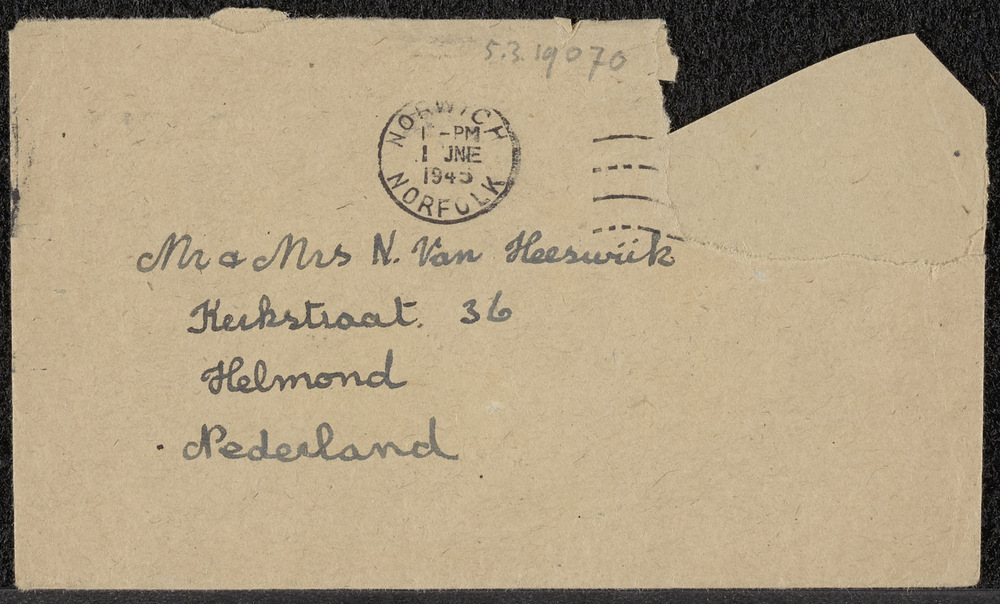 5.3.19070
NORWICH
-PM
1 JNE
1945
NORFOLK
Mr & Mrs N. Van Heeswijk
Kerkstraat. 36
Helmond
Nederland